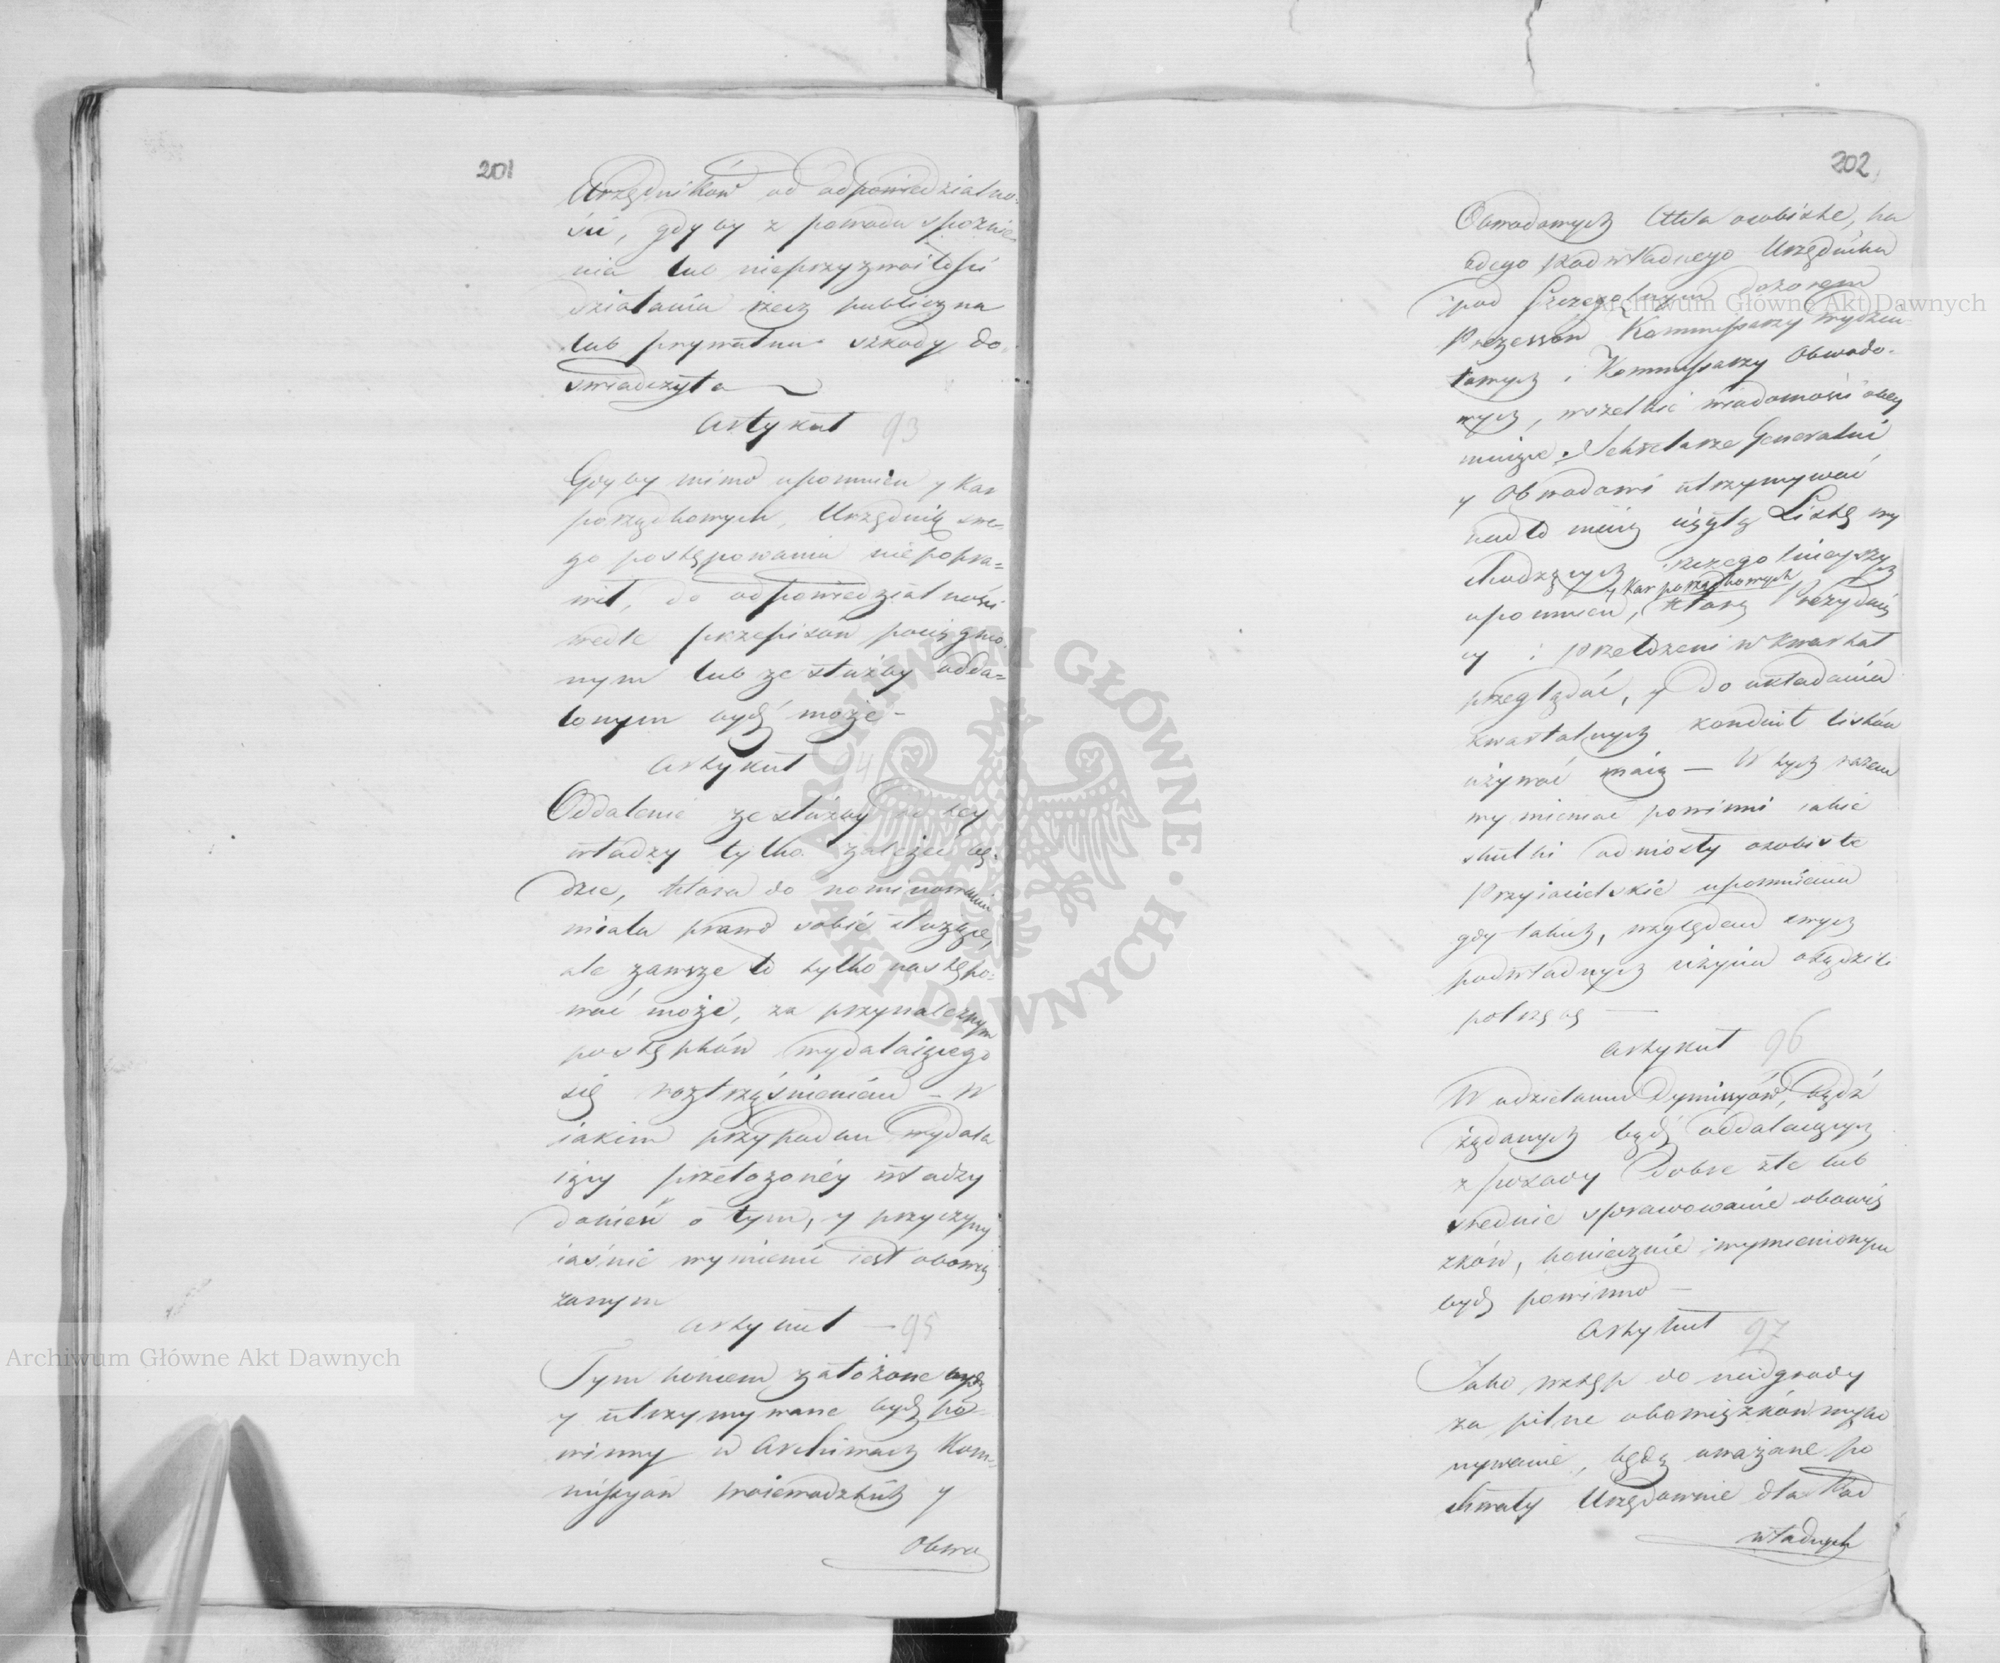 201
Urzędników od odpowiedzialno-
ści, gdyby z powodu spoznie-
nia lub nieprzyzwoitości
działania rzecz publiczna
lub prywatna szkody do
swiadczyła
Artykuł 93
Gdyby mimo upomnień y Kar
porządkowych, Urzędnik swe-
go postępowania niepopra-
wił, do odpowiedzialności
wedle przepisów pociągnio-
nym lub ze służby odda-
lonym bydź może
Artykuł 94
Oddalenie ze służby od tey
władzy tylko zależeć bę-
dzie, która do nominowania
miała prawo sobie służące,
ale zawsze to tylko następo-
wać może, za przynależnym
postępków wydalaiącego
się roztrząśnieniem - W
iakim przypadku wydala
iący przełożoney władzy
donieść o tym, y przyczyny
iaśnie wymienić iest obowią
zanym
Artykuł - 95
Tym końcem założone będą
y utrzymywane bydź po-
winny w Archiwach Kom-
missyów Woiewodzkich y
Obwo
202
Obwodowych Akta osobiste, ka
żdego podwładnego Urzędnika
pod szczególnym dozorem
Prezessów Kommissarzy Wydzia
łowych i Kommissarzy Obwodo-
wych, wszelkie wiadomości obey
muiące. Sekretarze Generalni
y Obwodowi utrzymywać
nadto maią ciągłą Listę wy
chodzących szczegolnieyszych
y Kar porządkowych
upomnień, którą Prezyduią
cy i przełożeni w kwartał
przeglądać, y do układania
kwartalnych konduit listów
używać maią — W tych razem
wymieniać powinni iakie
skutki odniosły osobiste
Przyiacielskie upomnienia
gdy takich, względem swych
podwładnych użycia osądzili
potrzebę —
Artykuł 96
W udzielaniu Dymissyów, bądź
żądanych bądź oddalaiących
z posady dobre złe lub
srednie sprawowanie obowią
zków, koniecznie wymienionym
bydź powinno —
Artykuł 97
Jako wstęp do nadgrody
za pilne obowiązków wyko
nywanie, będą uważane po
chwały Urzędownie dla Pod
władnych
Archiwum Główne Akt Dawnych
Archiwum Główne Akt Dawnych
ARCHIWUM GŁÓWNE • AKT DAWNYCH •